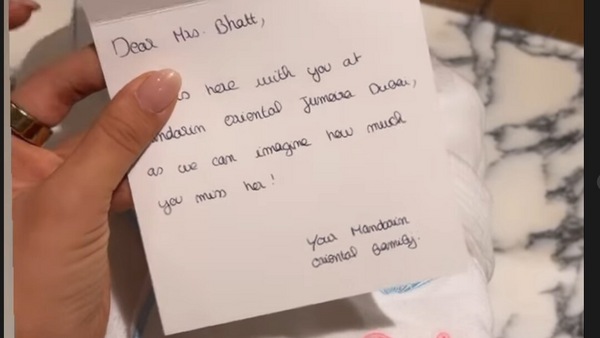 Dear Mrs. Bhatt,
is here with you at
ndarin oriental Jumeira Dubai,
as we can imagine how much
you miss her!
Your Mandarin
oriental family.